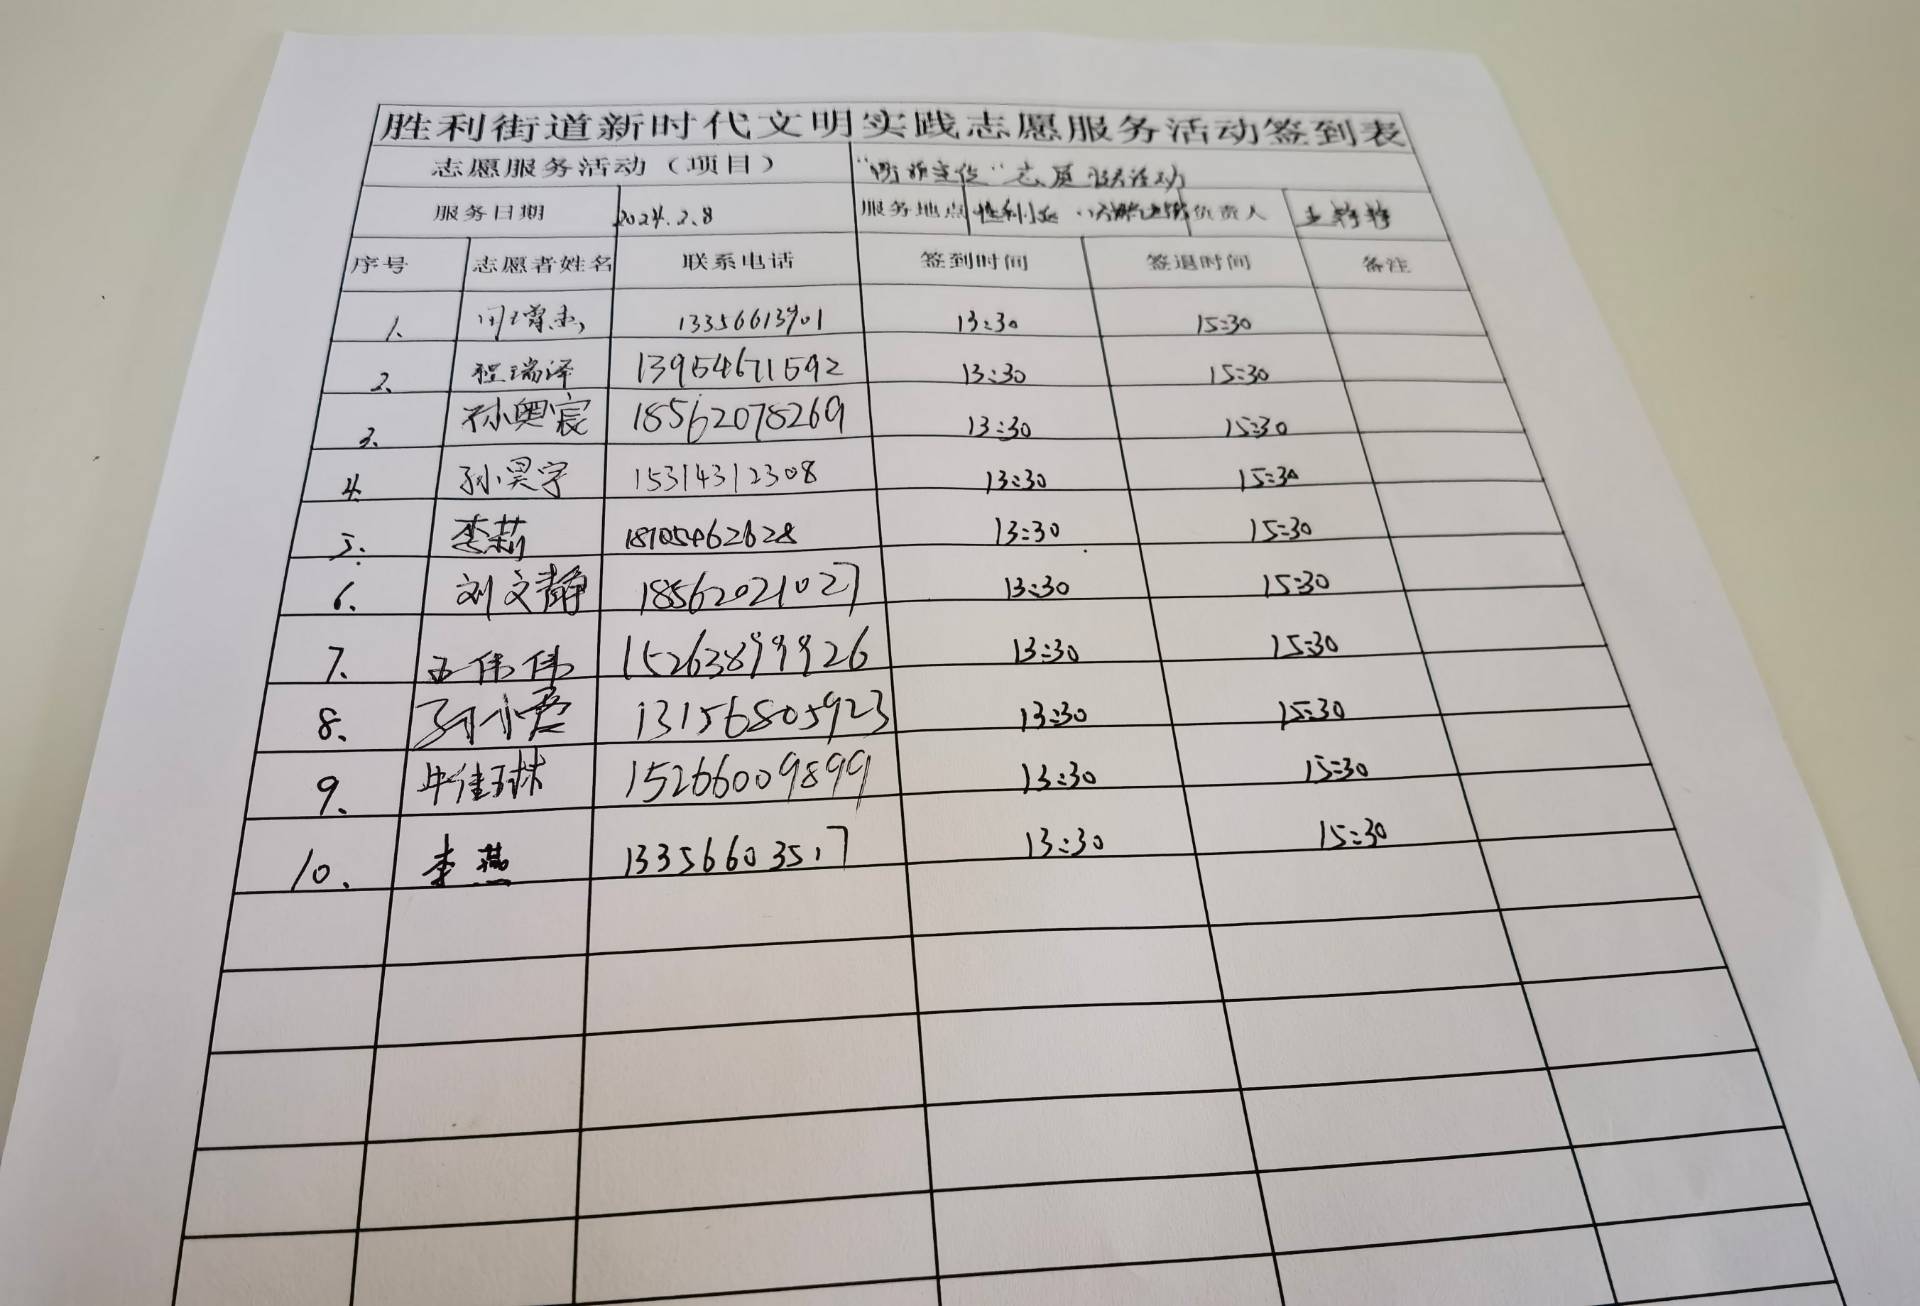 胜利街道新时代文明实践志愿服务活动签到表
志愿服务活动（项目） 志愿服务活动
服务日期 2024.2.8 服务地点 胜利 负责人
序号 志愿者姓名 联系电话 签到时间 签退时间 备注
1. 13356613901 13:30 15:30
2. 程瑞泽 13954671592 13:30 15:30
3. 孙奥宸 18562078269 13:30 15:30
4. 孙昊宇 15314312308 13:30 15:30
5. 李莉 18705462628 13:30 15:30
6. 刘文静 18562021027 13:30 15:30
7. 王伟伟 15263899926 13:30 15:30
8. 13156805923 13:30 15:30
9. 牛佳球 15266009899 13:30 15:30
10. 李燕 13356603517 13:30 15:30